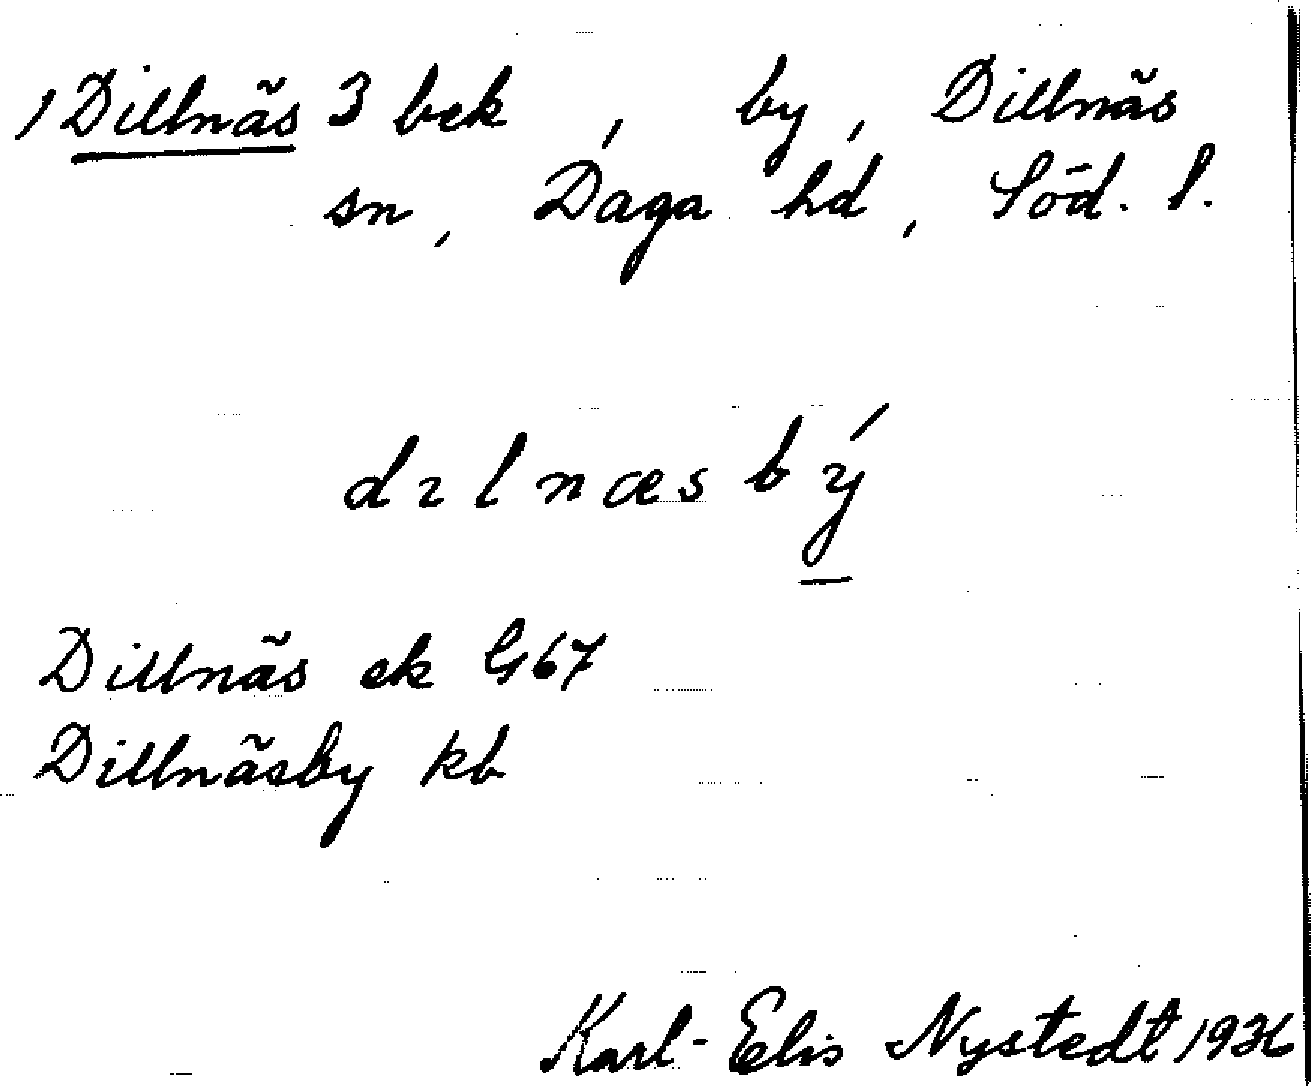 1 Dillnäs 3 bek, by, Dillnäs
sn, Daga hd, Söd. l.
dɪlnæsbý
Dillnäs ek G67
Dillnäsby kb
Karl-Elis Nystedt 1936